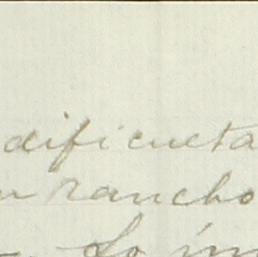 dificulta
rancho
Lo im